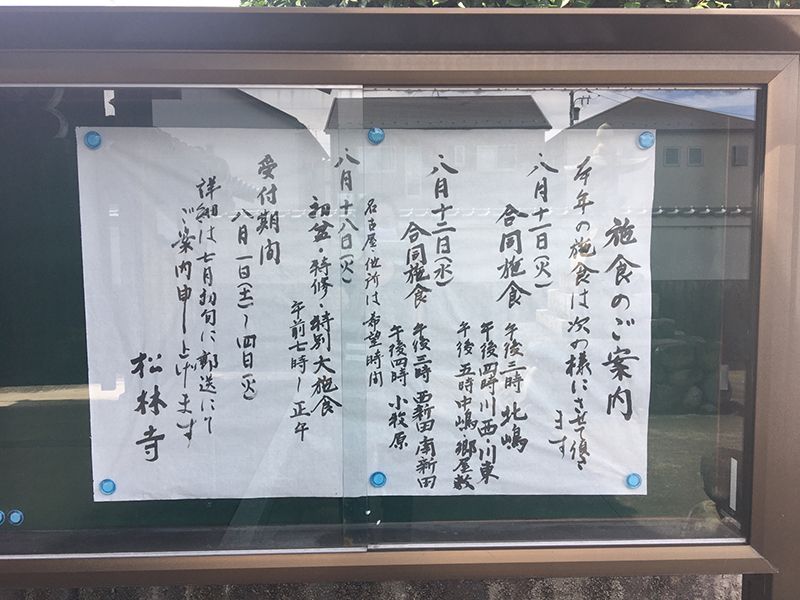 施食のご案内
本年の施食は次の様にさせて頂き
ます
八月十一日(火)
合同施食
午後三時 北嶋
午後四時 川西・川東
午後五時 中嶋・郷屋敷
八月十二日(水)
合同施食
午後三時 西新田・南新田
午後四時 小牧原
名古屋・他所は希望時間
八月十八日(火)
初盆・特修・特別大施食
午前七時〜正午
受付期間
八月一日(土)〜四日(火)
詳細は七月初旬に郵送にて
ご案内申し上げます
松林寺